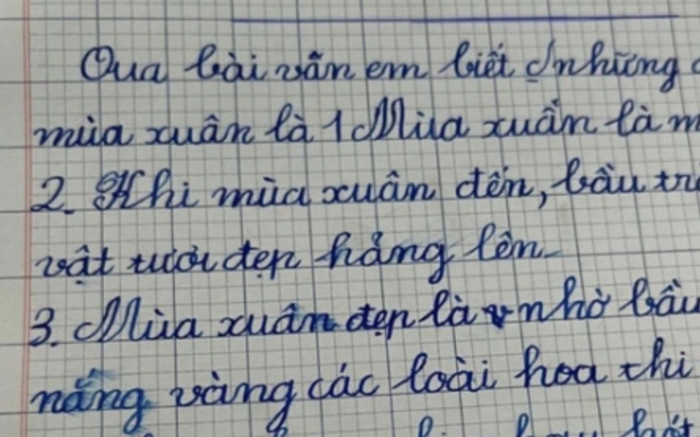 Qua bài văn em biết những
mùa xuân là 1 Mùa xuân là m
2. Khi mùa xuân đến, bầu tr
vật tươi đẹp hẳng lên
3. Mùa xuân đẹp là nhờ bầu
nắng vàng các loài hoa thi